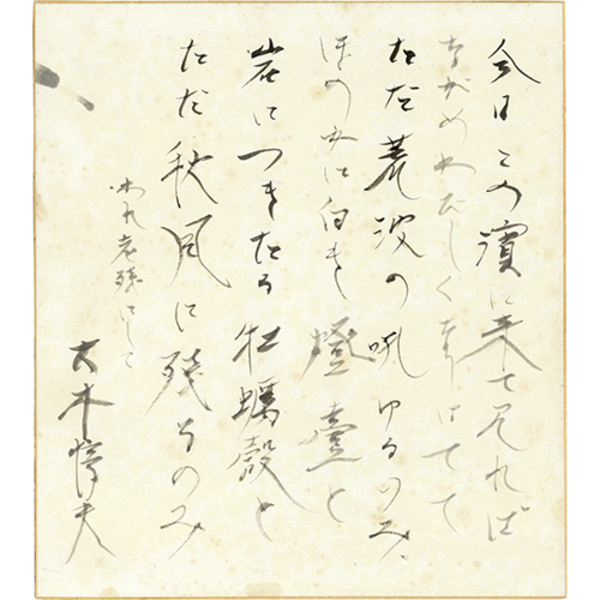 今日この濱に来て見れば
ながめわびしく荒はてて
ただ荒波の吼ゆるのみ
ほのかに白き燈臺と
岩につきたる牡蠣殻と
ただ秋風に残るのみ
われ老残にして
大木惇夫